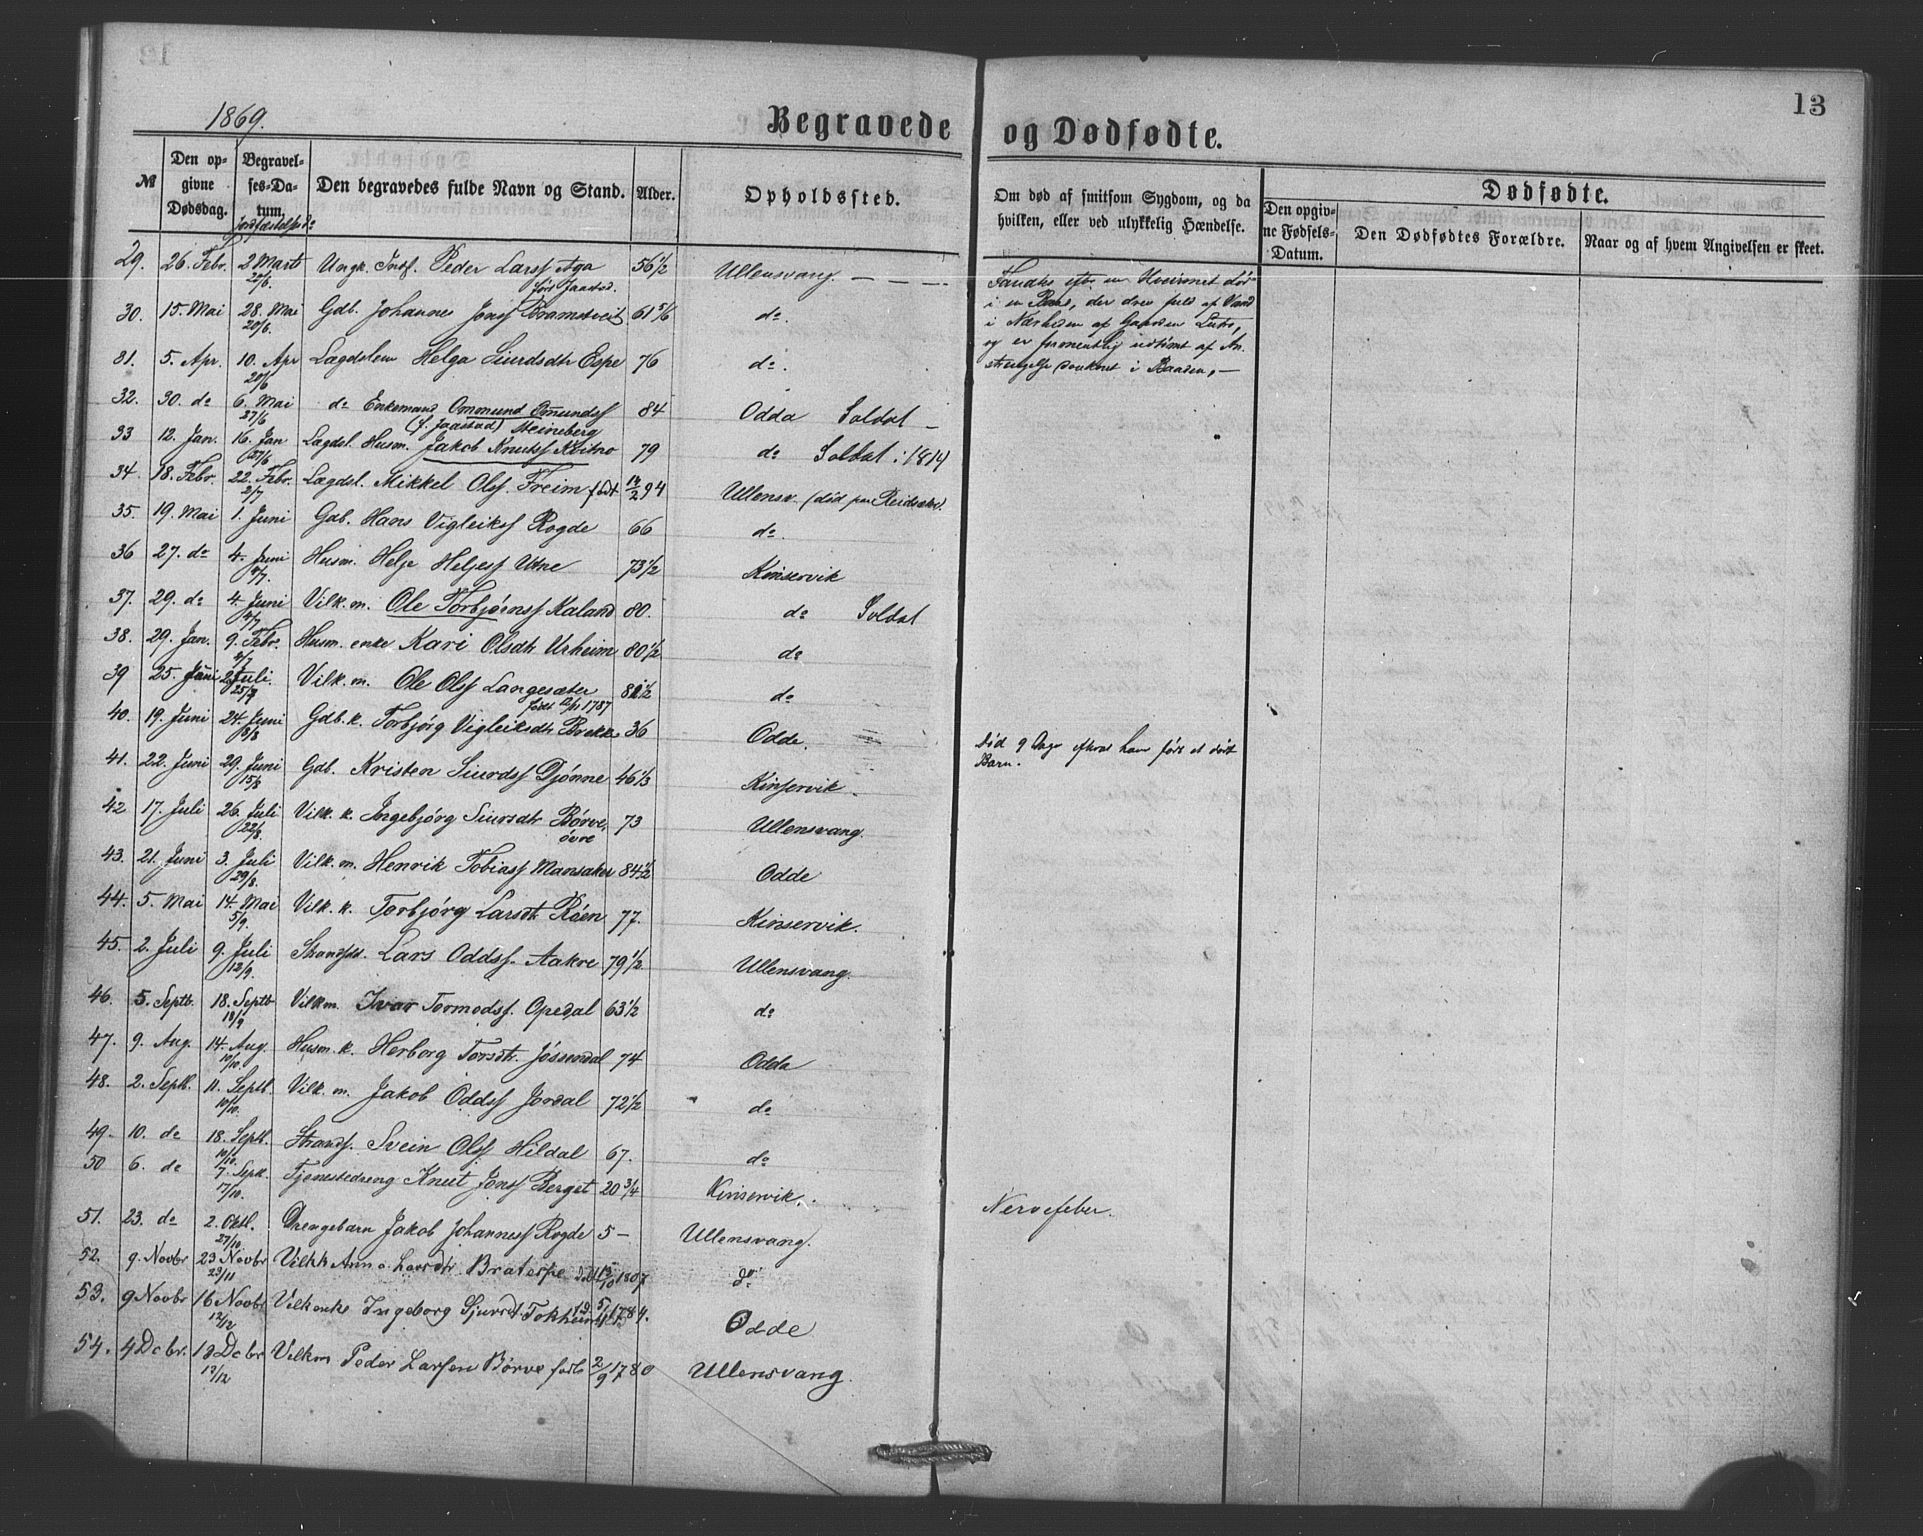 13
1869.
Begravede og Dødfødte.
№
Den opgivne Dødsdag.
Begravelses-Datum.
Jordfæstelse do
Den begravedes fulde Navn og Stand.
Alder.
Opholdssted.
Om død af smitsom Sygdom, og da hvilken, eller ved ulykkelig Hændelse.
Dødfødte.
Den opgivne Fødsels-Datum.
Den Dødfødtes Forældre.
Naar og af hvem Angivelsen er skeet.
29. 26. Febr. 2 Marts 20/6. Ungk. Inds. Peder Larss Aga 56 1/2 Ullensvang. — — —
Fandtes eft. en
i en Baad, der drev fuld af Vand
i Nærheden af Gaarden
og er formentlig udtømt af An-
i Baaden, —
født Jaastad.
30. 15. Mai 28. Mai 20/6. Gdb. Johannes Jonss Bramstveit 61 5/6 do.
31. 5. Apr. 10. Apr 20/6 Lægdslem Helga Siurdsdtr Espe 76 do.
32. 30. do 6. Mai 27/6 do Enkemand Ommund Omundss 84 Odda Soldat —
(f. Jaastad) Steineberg
33 12. Jan. 16. Jan 27/6 Lægdsl. Husm. Jakob Knutss Kvitno 79 do Soldat i 1814
34 18. Febr. 22. Febr. 2/7 Lægdsl. Mikkel Olss. Freim født 14/2 94 Ullensv. (død paa Reidsæter)
35. 19. Mai 1. Juni Gdb. Hans Vigleikss Rogde 66 do.
36 27. do 4. Juni 4/7. Husm. Helje Heljess Utne 73 1/2 Kinservik
37. 29. do 4. Juni 4/7 Vilk. m. Ole Torbjørnss Kaland 80. do Soldat
38. 29. Jan. 9. Febr. 4/7 Husm. enke Kari Olsdtr Urheim 80 1/2 do
39 25. Juni 2 Juli. 25/7 Vilk. m. Ole Olss Langesæter 81 1/2 do
født 1787
40. 19. Juni 24. Juni 8/8 Gdb. k. Torbjørg Vigleiksdtr Brekke 36 Odde.
Død 9 Dage efterat have født et dødt
Barn.
41. 22. Juni 29. Juni 15/8 Gdb. Kristen Siurdss Djønne 46 1/3 Kinservik.
42 17. Juli 26. Juli 22/8. Vilk. k. Ingebjørg Siursdtr Børve, 73 Ullensvang.
øvre
43. 21. Juni 3. Juli 29/8. Vilk. m. Henrik Tobiass Mansaker 84 1/2 Odde
44. 5. Mai 14. Mai 5/9. Vilk. k. Torbjørg Larsdt. Røen 77. Kinservik.
45. 2. Juli 9. Juli 12/9. Strandsd. Lars Oddss. Aakre 79 1/2 Ullensvang.
46. 5. Septb. 18. Septb 18/9 Vilkm. Ivar Tormodss. Opedal 63 1/2 do
47. 9. Aug. 14. Aug. 10/10. Husm. k. Herborg Torsdtr. Jøssendal 74 Odda
48. 2. Septb. 11. Septb. 10/10. Vilk. m. Jakob Oddss Jordal 72 1/2 do
49. 10. do 18. Septb. 10/10. Strands. Svein Olss. Hildal 67. do
50 6. do 7. Septb. 17/10. Tjenestedreng Knut Jonss Berget 20 3/4 Kinservik. Nervefeber.
51. 23. do 2. Oktb. 27/10. Drengebarn Jakob Johanness Rogde 5 — Ullensvang.
52. 9. Novbr 23 Novbr 23/11 Vilkk Anna Larsdtr. Bratespe 13/10 1807 do
53. 9 Novbr 16 Novbr 12/12 Vilkenke Ingeborg Sjursdt. Tokheim 1784. Odde
54. 4 Dcbr. 13 Dcbr 17/12 Vilkm Peder Larsen Børve født 2/9 1780 Ullensvang.